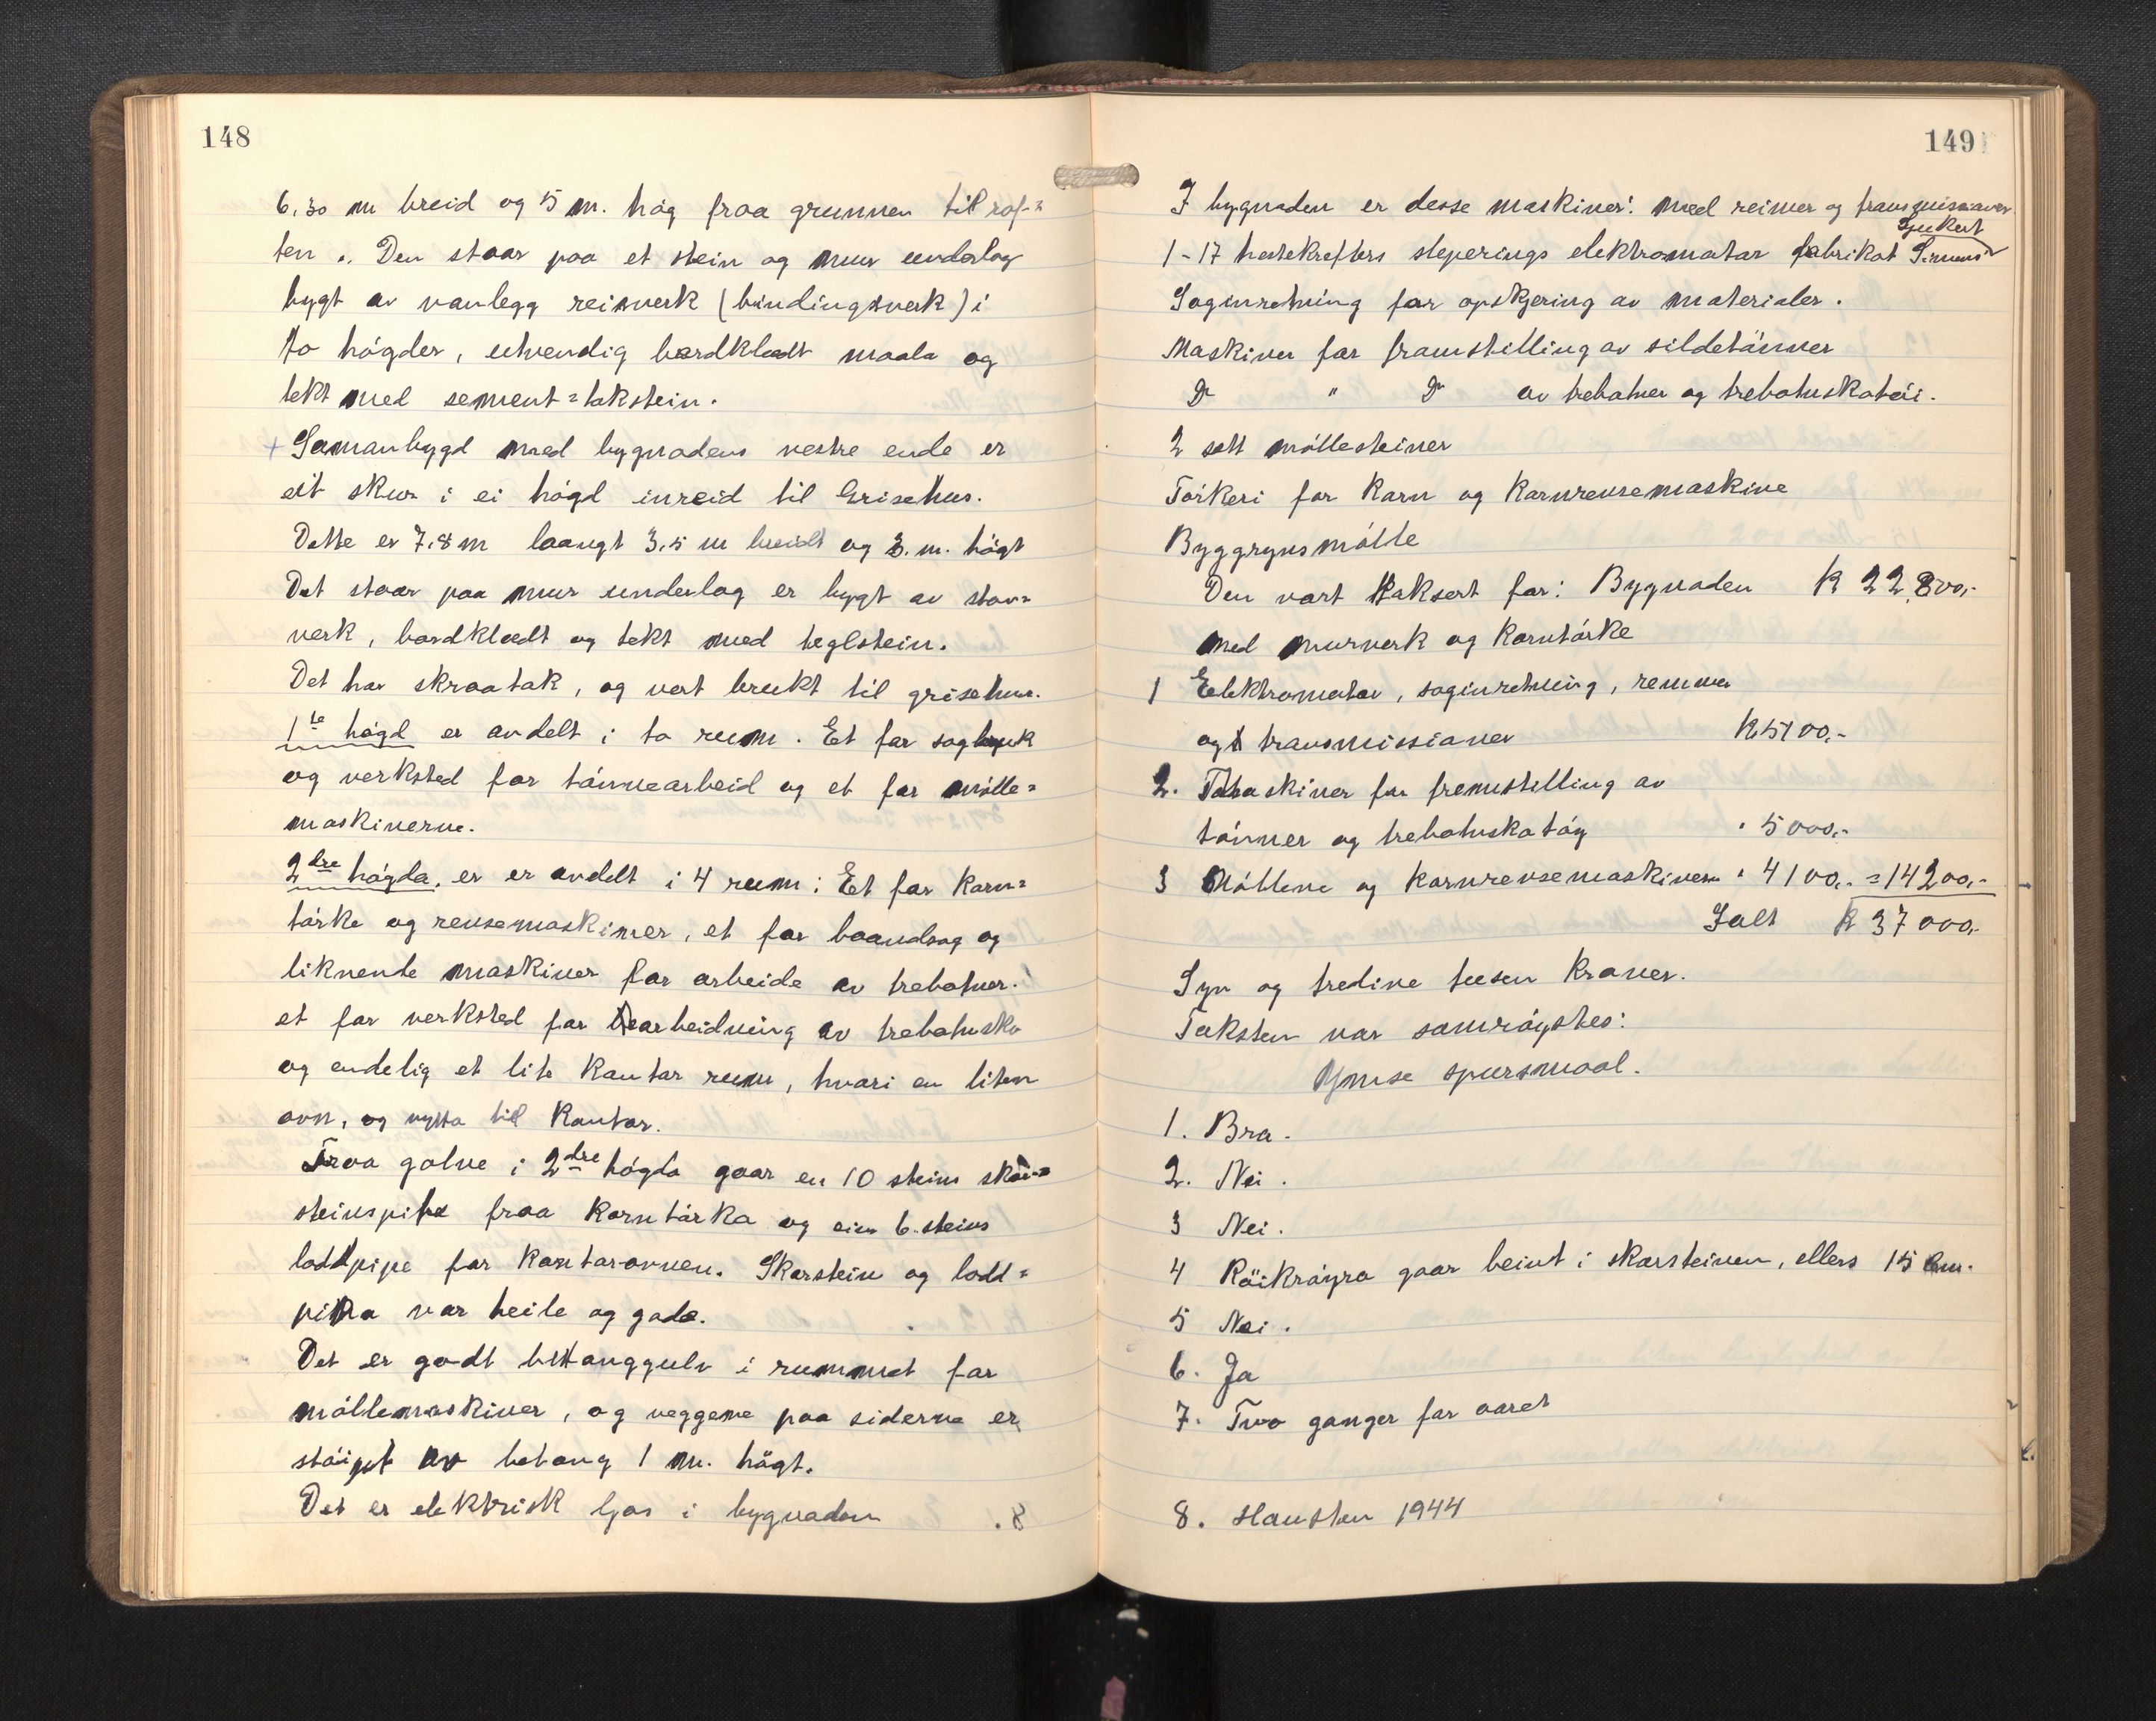 148
6.30 m breid og 5 m. høg fraa grunnen til raf=
ten. Den staar paa et stein og mur underlag
bygt av vanlegg reisverk (bindingsverk) i
to høgder, utvendig bordklædt maala og
tekt med sement=takstein.
+ Samanbygd med bygnadens vestre ende er
eit skur i ei høgd inreid til Grisehus.
Dette er 7.8 m laangt 3.5 m breidt og 3. m. høgt
Det staar paa mur underlag er bygt av stav=
verk, bordklædt og tekt med teglstein.
Det har skraatak, og vert brukt til grisehus.
1te høgd er avdelt i to rum. Et for sagbruk
og verksted for tønnearbeid og et for mølle=
maskinerne.
2dre høgda. er er avdelt i 4 rum: Et for korn=
tørke og rensemaskiner, et for baandsag og
liknende maskiner for arbeide av trebotner.
et for verksted for bearbeidning av trebotnsko
og endelig et lite kontor rum, hvori en liten
ovn, og nytta til kontor.
Fraa golve i 2dre høgda gaar en 10 steins skor=
steinspipe fraa korntørka og ein 6. steins
loddpipe for kontorovnen. Skorstein og lodd=
pipa var heile og gode.
Det er godt betonggulv i rummet for
møllemaskiner, og veggene paa siderne er
støipt av betong 1 m. høgt.
Det er elektrisk ljos i bygnaden
8.
149
I bygnaden er desse maskiner: med reimer og transmisioner
Sjukert
1-17 hestekrefters sleperings elektromotor fabrikat Simens
Saginretning for opskjering av materialer.
Maskiner for framstilling av sildetönner
Do " Do av trebotner og trebotnskotöi.
2 sett møllesteiner
Törkeri for korn og kornrensemaskine
Byggrynsmølle
Den vart taksert for: Bygnaden K 22.800,-
med murverk og korntørke
1 Elektromotor, saginretning, remmer
og transmissioner K 5100,-
2. Maskiner for fremstilling av
tønner og trebotnskotøy " 5000,-
3 Møllene og kornrensemaskinen " 4100,- = 14200,-
Ialt K 37000,-
Syv og tredive tusen kroner.
Taksten var samrøystes:
Ymse spursmaal.
1. Bra.
2. Nei.
3 Nei.
4 Röikröyra gaar beint i skorsteinen, ellers 15 cm.
5 Nei.
6. Ja
7. Tvo ganger for aaret
8. Hausten 1944